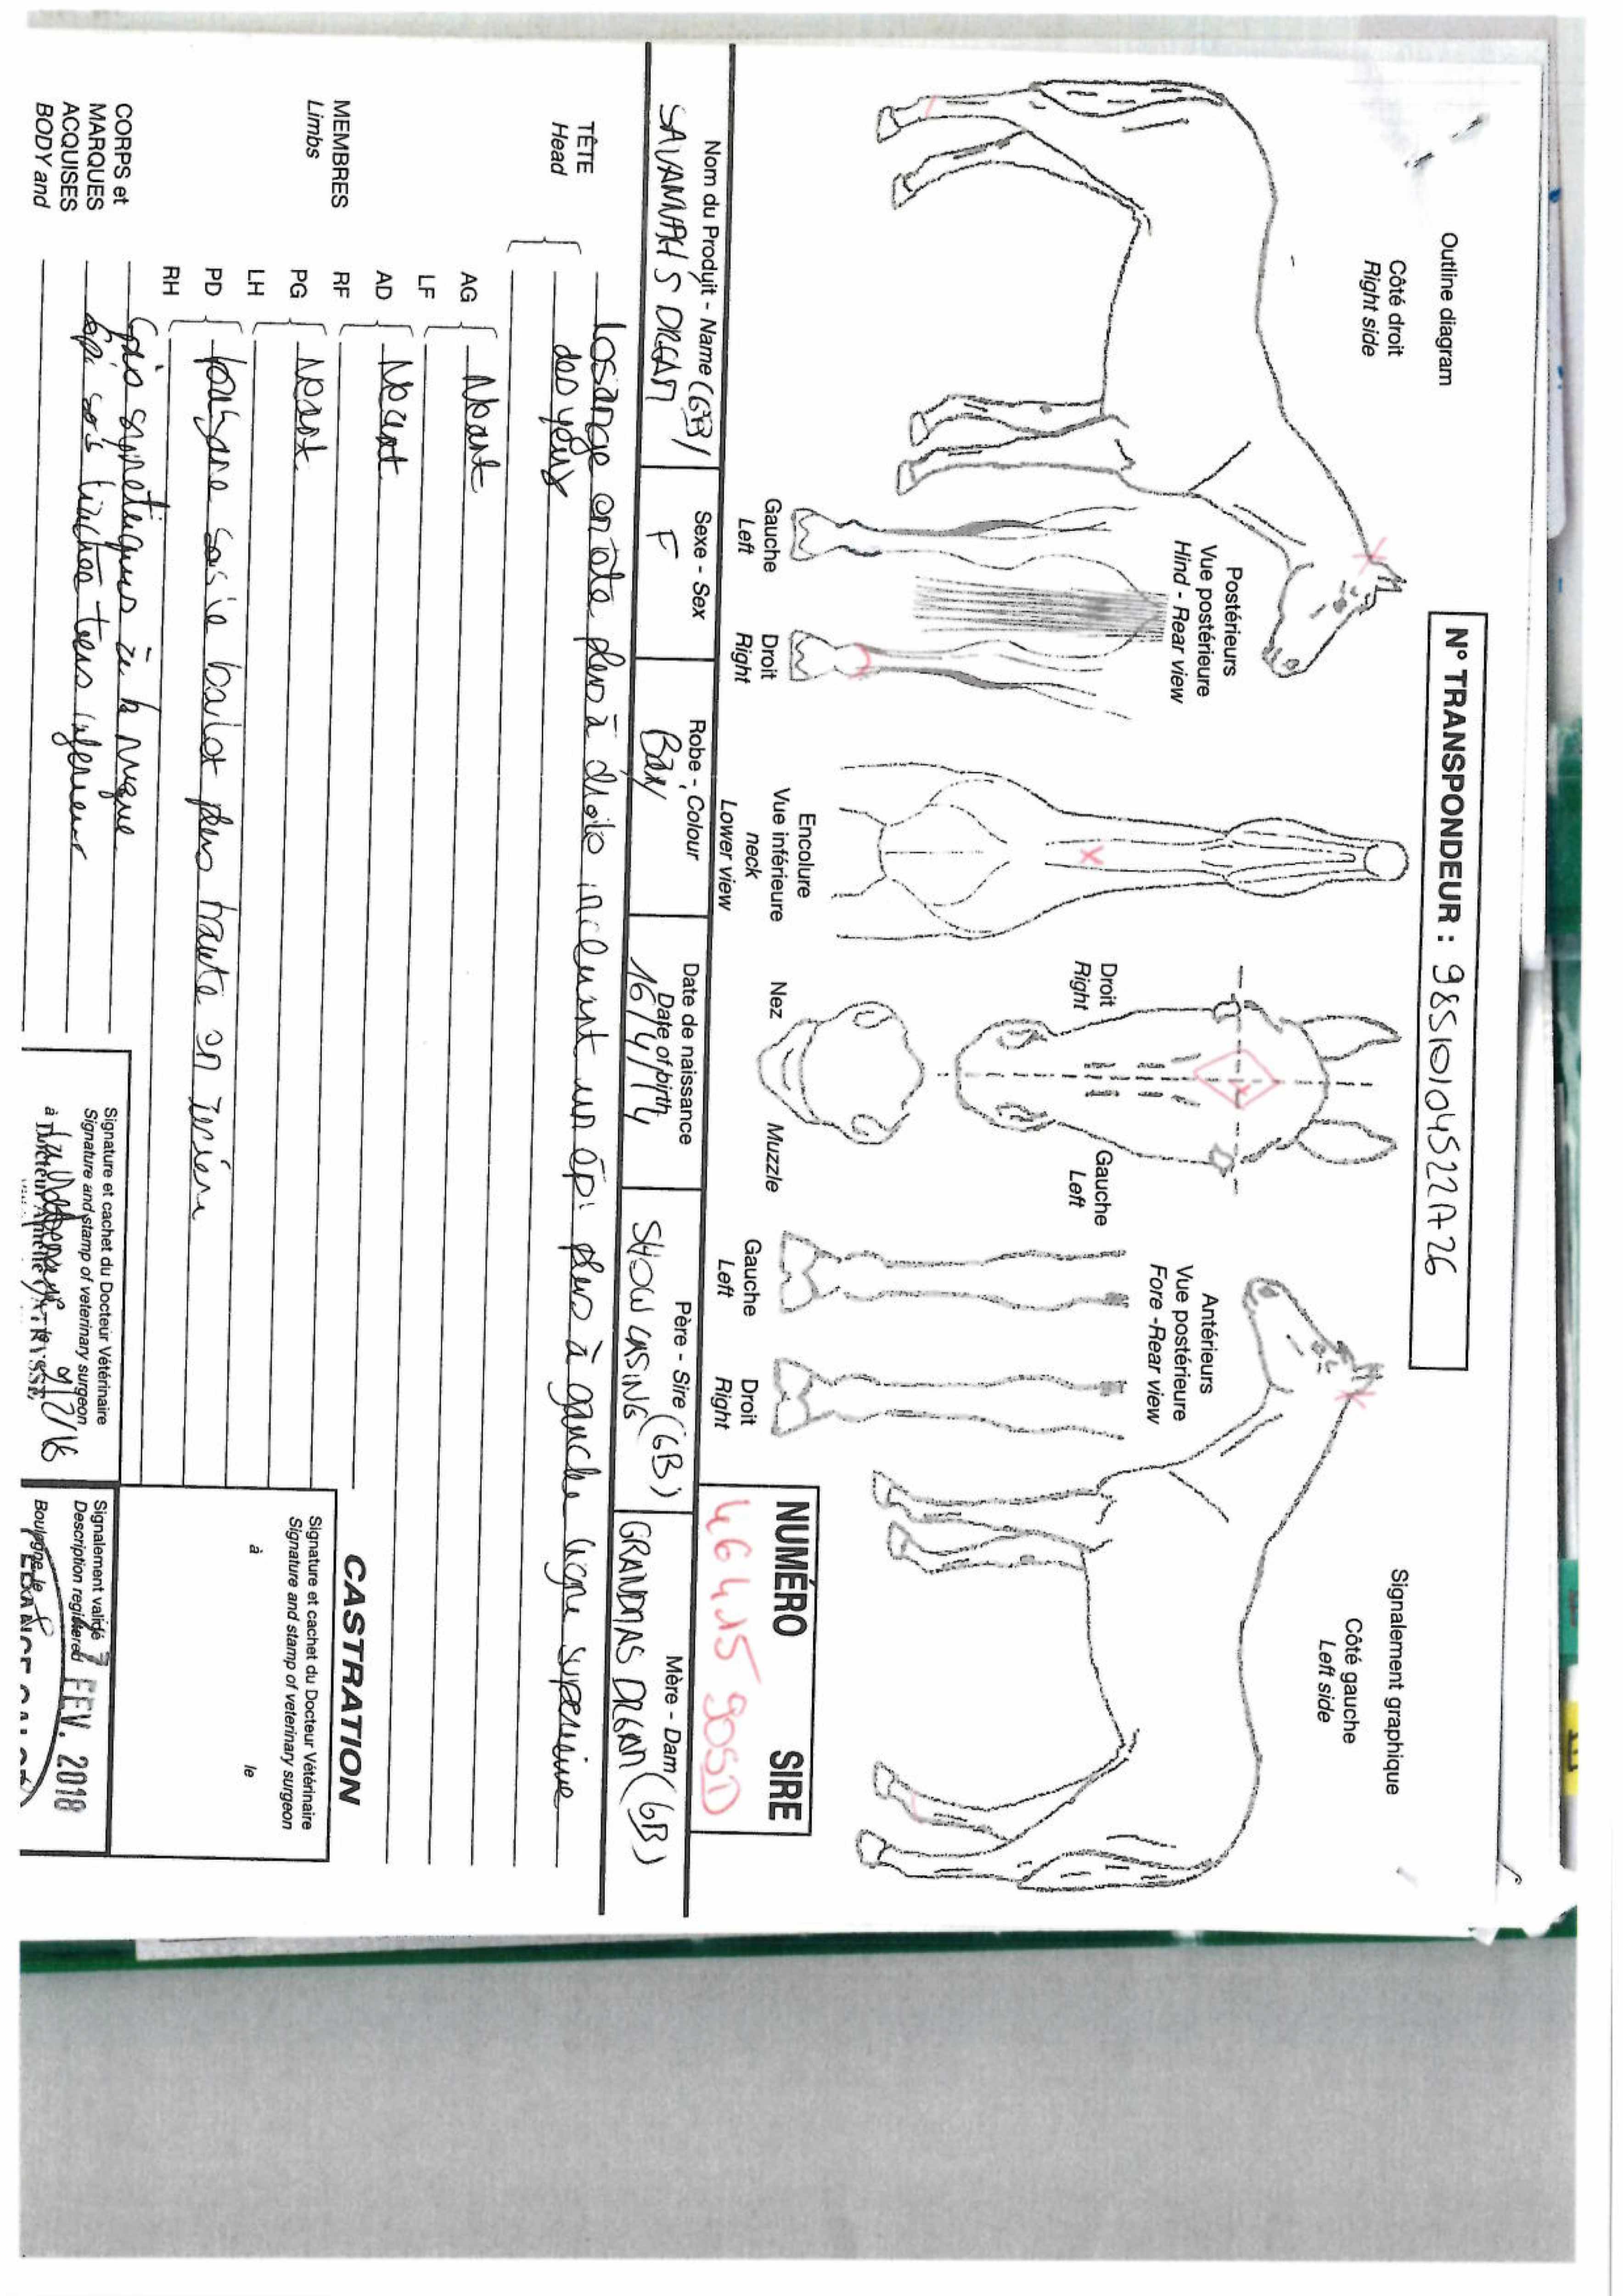 Outline diagram
Côté droit
Right side
N° TRANSPONDEUR : 985101045221A26
Signalement graphique
Côté gauche
Left side
Postérieurs
Vue postérieure
Hind - Rear view
Gauche
Left
Droit
Right
Encolure
Vue inférieure
neck
Lower view
Droit
Right
Gauche
Left
Nez
Muzzle
Antérieurs
Vue postérieure
Fore - Rear view
Gauche
Left
Droit
Right
NUMÉRO SIRE
Nom du Produit - Name (GB)
SAVANNAH S DREAM
Sexe - Sex
F
Robe - Colour
Bay
Date de naissance
Date of birth
16/4/14
Père - Sire (GB)
SHOWCASING
Mère - Dam (GB)
GRANDMAS DREAM
TÊTE
Head
Losange en tête plus à droite incluant un épi plus à gauche ligne supérieure
des yeux
MEMBRES
Limbs
AG
LF
Néant
AD
RF
Néant
PG
LH
Néant
PD
RH
plus haute en
CORPS et
MARQUES
ACQUISES
BODY and
Épis symétriques à la nuque
Épi tiers inférieur
Signature et cachet du Docteur Vétérinaire
Signature and stamp of veterinary surgeon
à
CASTRATION
Signature et cachet du Docteur Vétérinaire
Signature and stamp of veterinary surgeon
à le
Signalement validé
Description registered
7 FEV. 2018
Boulogne, le